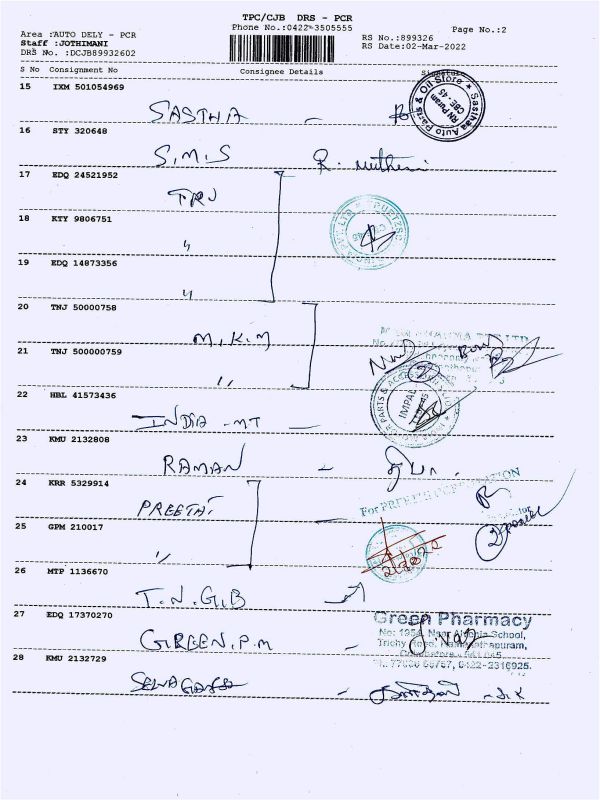 TPC/CJB DRS - PCR
Phone No.:0422-3505555
Page No.:2
Area :AUTO DELY - PCR
Staff :JOTHIMANI
DRS No. :DCJB89932602
RS No.:899326
RS Date:02-Mar-2022
S No Consignment No Consignee Details Signature
15 IXM 501054969
SASTHA
Sasthaa Auto Parts & Oil Store
RN Puram
CBE - 45
16 STY 320648
S.M.S R.
17 EDQ 24521952
TRJ
18 KTY 9806751
"
19 EDQ 14873356
"
20 TNJ 50000758
M.K.M
21 TNJ 500000759
"
22 HBL 41573436
INDIA -MT
IMPAL
23 KMU 2132808
RAMAN - தீபா.
24 KRR 5329914
PREETHI
For PREETHI CORPORATION
25 GPM 210017
"
26 MTP 1136670
T.N.G.B
27 EDQ 17370270
GREEN.P.M
Green Pharmacy
No: 195A, Near Alvernia School,
Trichy Road, Ramanathapuram,
Coimbatore - 641 045.
28 KMU 2132729